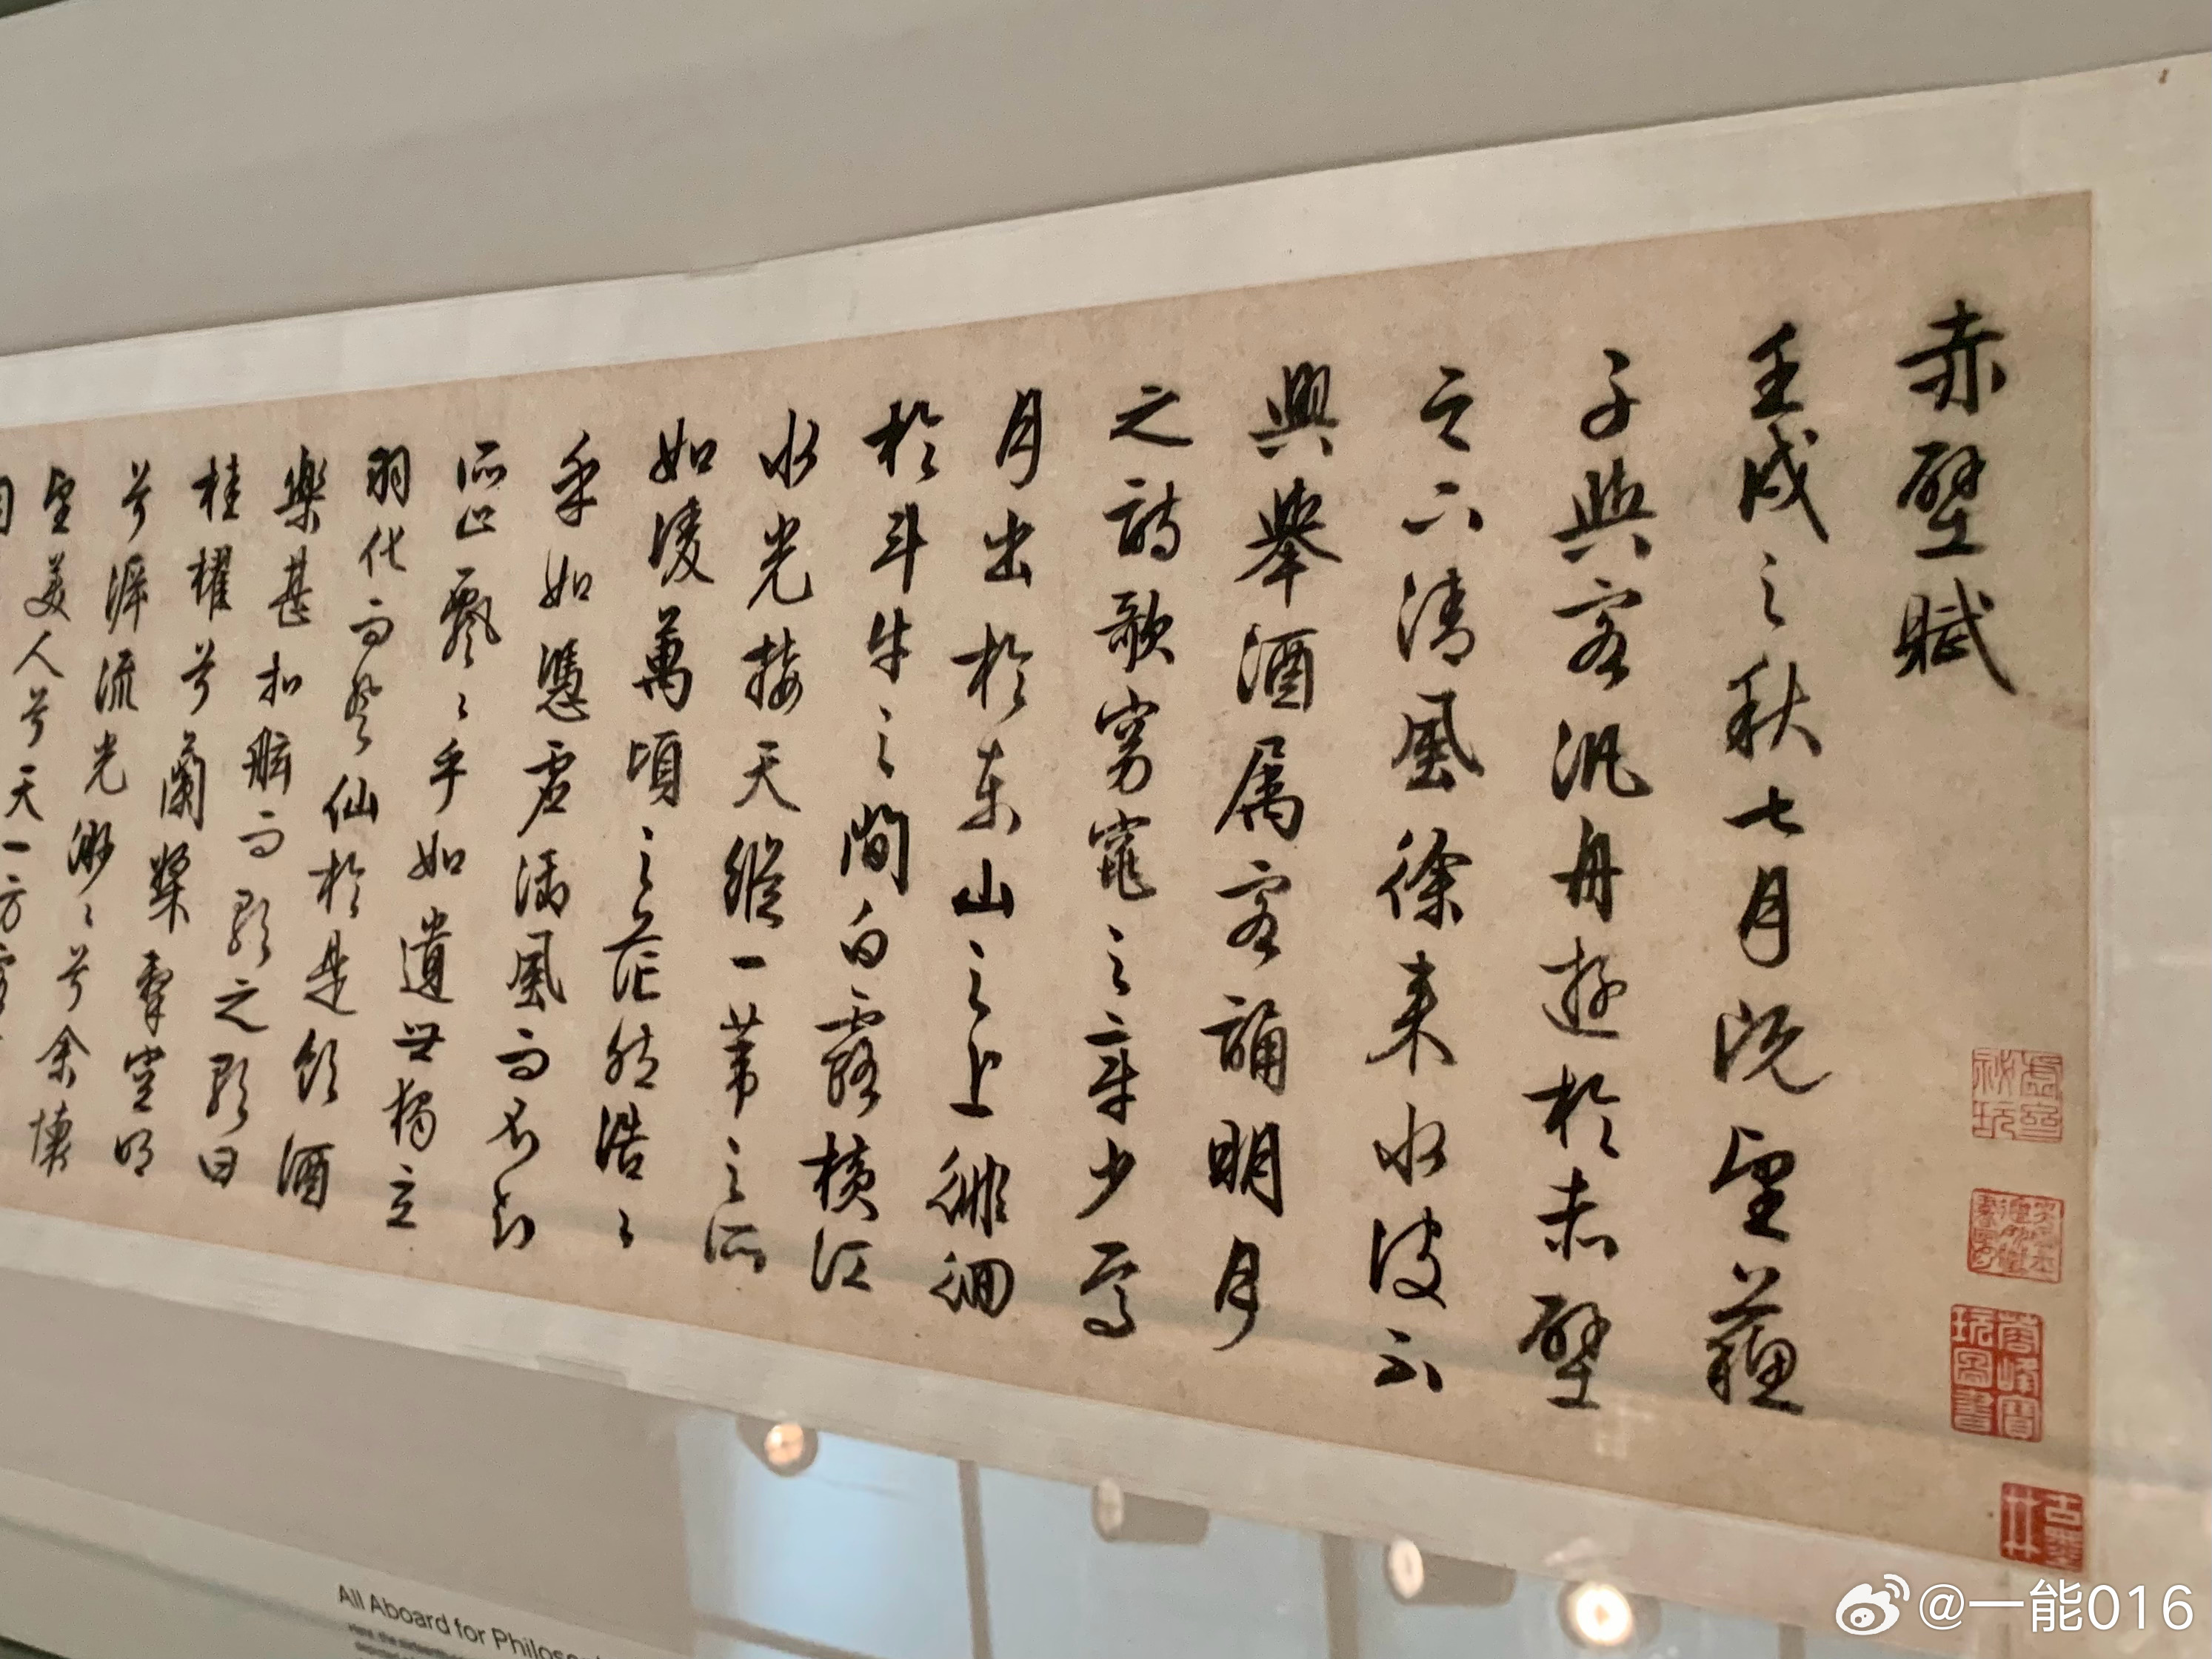 赤壁賦
壬戌之秋七月既望蘇
子與客汎舟遊於赤壁
之下清風徐來水波不
興舉酒属客誦明月
之詩歌窈窕之章少焉
月出於東山之上徘徊
於斗牛之間白露橫江
水光接天縱一葦之所
如凌萬頃之茫然浩〻
乎如憑虛御風而不知
所止飄〻乎如遺世獨立
羽化而登仙於是飲酒
樂甚扣舷而歌之歌曰
桂櫂兮蘭槳擊空明
兮泝流光渺〻兮余懷
望美人兮天一方客
All Aboard for
@一能016